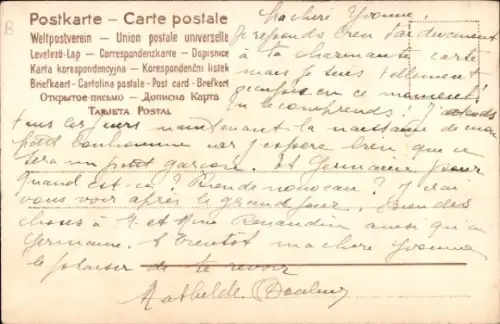 Postkarte – Carte postale
Weltpostverein – Union postale universelle
Levelező-Lap – Correspondenzkarte – Dopisnice
Karta korespondencyjna – Korespondenční listek
Briefkaart – Cartolina postale – Post card – Brefkort
Открытое письмо – Дописна Карта
Tarjeta Postal
Ma chère Yvonne,
Je réponds bien tardivement
à ta charmante carte
mais je suis tellement
en ce moment!
tu comprends! J'attends
tous les jours maintenant la naissance de mon
petit bonhomme car j'espère bien que ce
sera un petit garçon. Et Germaine pour
quand est-ce? Rien de nouveau? J'irai
vous voir après le grand jour. Bien des
choses à M. et Mme ainsi qu'à
Germaine. A bientôt ma chère Yvonne
le plaisir de te revoir
Mathilde